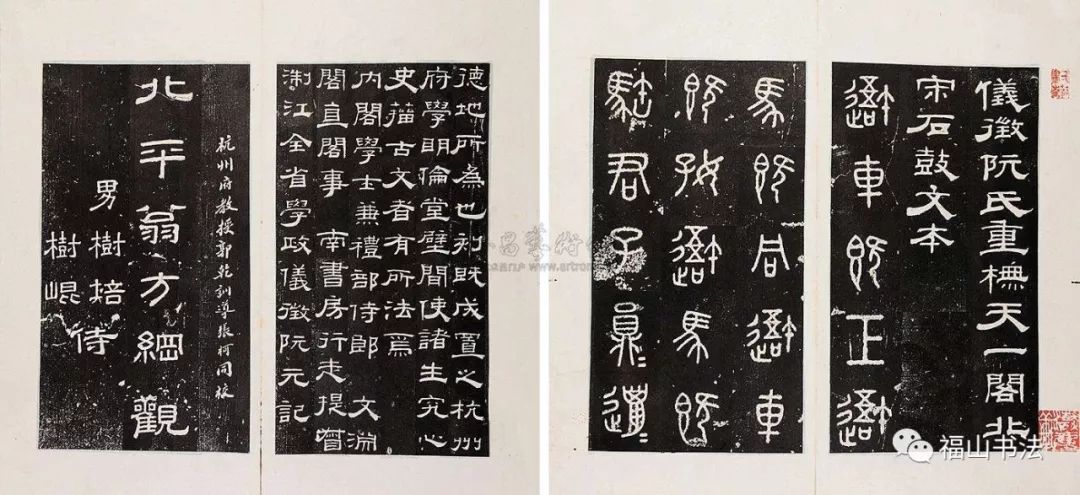 儀徵阮氏重橅天一閣北
宋石鼓文本
避車既工避
馬既同避車
既好避馬既
駐君子員=邋=
德地所為也刻既成置之杭州
府學明倫堂壁間使諸生究心
史籀古文者有所法焉
內閣學士兼禮部侍郎 文淵
閣直閣事 南書房行走提督
浙江全省學政儀徵阮元記
杭州府教授郭乾訓導張柯同校
北平翁方綱觀
男樹培侍
樹崐
福山书法